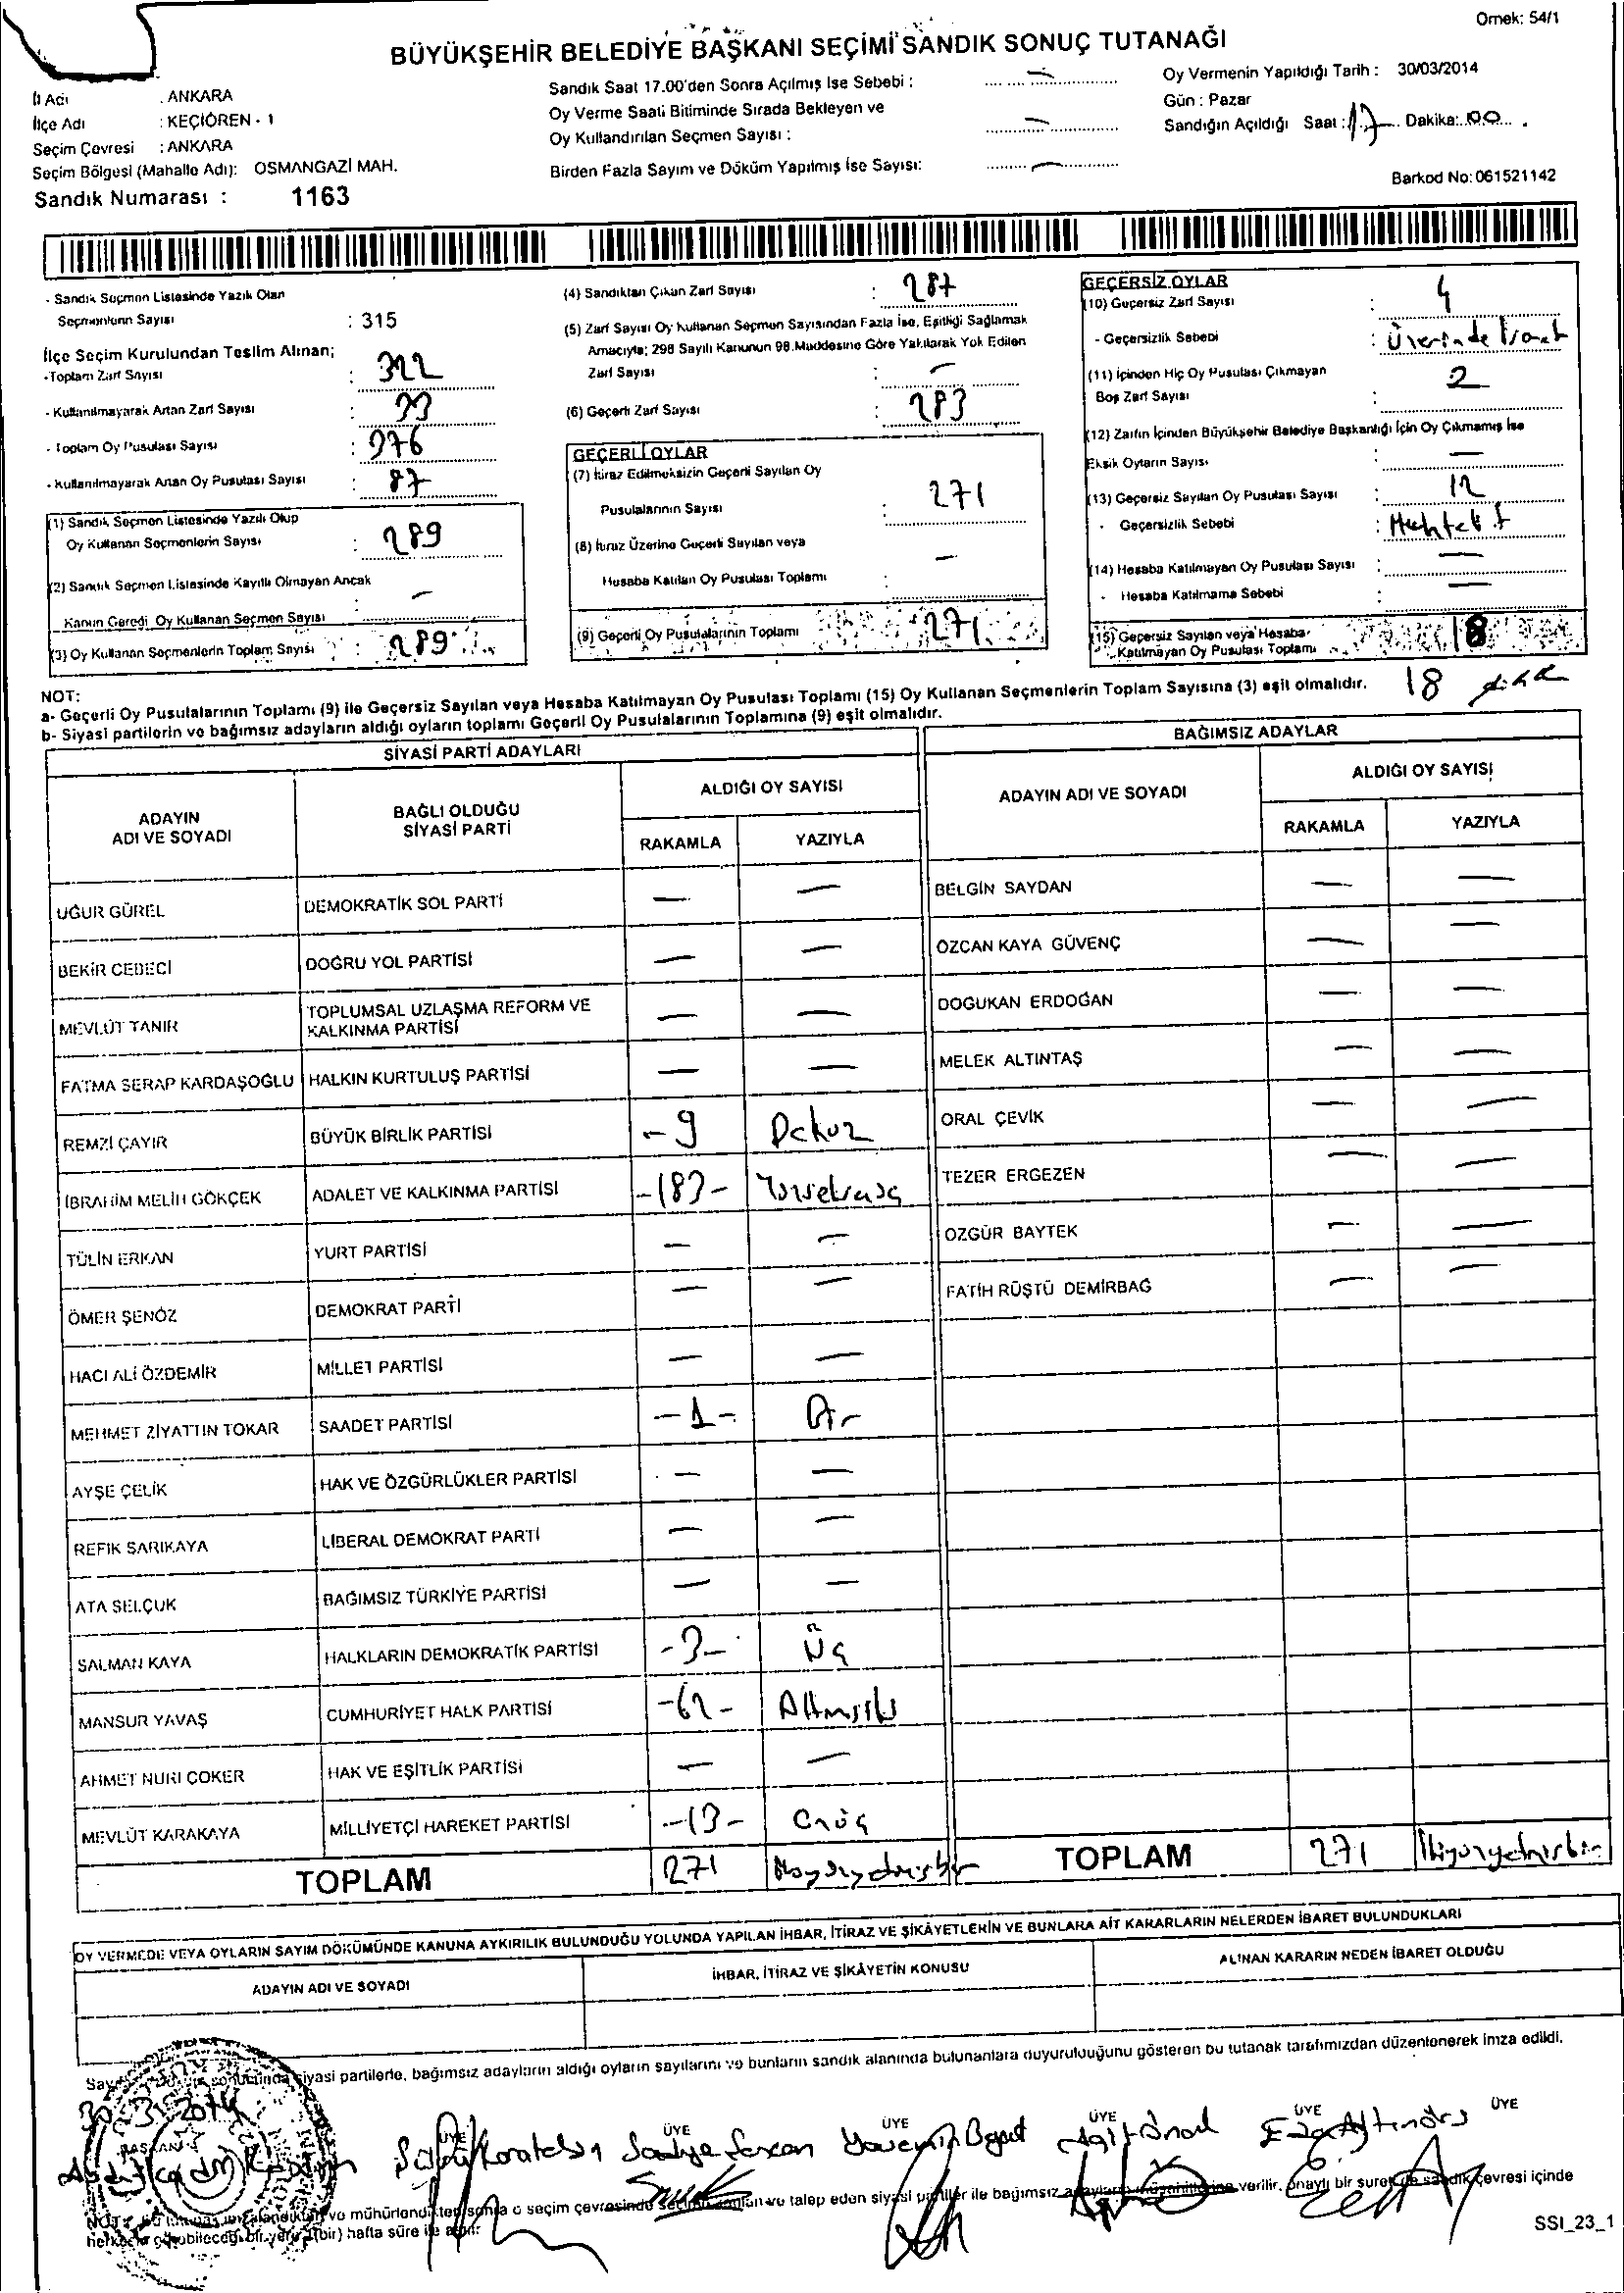 Örnek: 54/1
BÜYÜKŞEHİR BELEDİYE BAŞKANI SEÇİMİ SANDIK SONUÇ TUTANAĞI
İl Adı : ANKARA
İlçe Adı : KEÇİÖREN - 1
Seçim Çevresi : ANKARA
Seçim Bölgesi (Mahalle Adı): OSMANGAZİ MAH.
Sandık Numarası : 1163
Sandık Saat 17.00'den Sonra Açılmış İse Sebebi : —
Oy Verme Saati Bitiminde Sırada Bekleyen ve
Oy Kullandırılan Seçmen Sayısı : —
Birden Fazla Sayım ve Döküm Yapılmış İse Sayısı: —
Oy Vermenin Yapıldığı Tarih : 30/03/2014
Gün : Pazar
Sandığın Açıldığı Saat : 17 Dakika: 00
Barkod No: 061521142
- Sandık Seçmen Listesinde Yazılı Olan
Seçmenlerin Sayısı : 315
İlçe Seçim Kurulundan Teslim Alınan;
-Toplam Zarf Sayısı : 322
- Kullanılmayarak Artan Zarf Sayısı : 33
- Toplam Oy Pusulası Sayısı : 376
- Kullanılmayarak Artan Oy Pusulası Sayısı : 87
(1) Sandık Seçmen Listesinde Yazılı Olup
Oy Kullanan Seçmenlerin Sayısı : 289
(2) Sandık Seçmen Listesinde Kayıtlı Olmayan Ancak
Kanun Gereği Oy Kullanan Seçmen Sayısı : —
(3) Oy Kullanan Seçmenlerin Toplam Sayısı : 289
(4) Sandıktan Çıkan Zarf Sayısı : 287
(5) Zarf Sayısı Oy Kullanan Seçmen Sayısından Fazla İse, Eşitliği Sağlamak
Amacıyla; 298 Sayılı Kanunun 98.Maddesine Göre Yakılarak Yok Edilen
Zarf Sayısı : —
(6) Geçerli Zarf Sayısı : 283
GEÇERLİ OYLAR
(7) İtiraz Edilmeksizin Geçerli Sayılan Oy
Pusulalarının Sayısı : 271
(8) İtiraz Üzerine Geçerli Sayılan veya
Hesaba Katılan Oy Pusulası Toplamı : —
(9) Geçerli Oy Pusulalarının Toplamı : 271
GEÇERSİZ OYLAR
(10) Geçersiz Zarf Sayısı : 4
- Geçersizlik Sebebi : Üzerinde
(11) İçinden Hiç Oy Pusulası Çıkmayan
Boş Zarf Sayısı : 2
(12) Zarfın İçinden Büyükşehir Belediye Başkanlığı İçin Oy Çıkmamış İse
Eksik Oyların Sayısı : —
(13) Geçersiz Sayılan Oy Pusulası Sayısı : 12
- Geçersizlik Sebebi : Muhtelif
(14) Hesaba Katılmayan Oy Pusulası Sayısı : —
- Hesaba Katılmama Sebebi : —
(15) Geçersiz Sayılan veya Hesaba
Katılmayan Oy Pusulası Toplamı 18
18
NOT:
a- Geçerli Oy Pusulalarının Toplamı (9) ile Geçersiz Sayılan veya Hesaba Katılmayan Oy Pusulası Toplamı (15) Oy Kullanan Seçmenlerin Toplam Sayısına (3) eşit olmalıdır.
b- Siyasi partilerin ve bağımsız adayların aldığı oyların toplamı Geçerli Oy Pusulalarının Toplamına (9) eşit olmalıdır.
SİYASİ PARTİ ADAYLARI
ADAYIN ADI VE SOYADI BAĞLI OLDUĞU SİYASİ PARTİ ALDIĞI OY SAYISI
RAKAMLA YAZIYLA
UĞUR GÜREL DEMOKRATİK SOL PARTİ — —
BEKİR CEDECİ DOĞRU YOL PARTİSİ — —
MEVLÜT TANIR TOPLUMSAL UZLAŞMA REFORM VE KALKINMA PARTİSİ — —
FATMA SERAP KARDAŞOĞLU HALKIN KURTULUŞ PARTİSİ — —
REMZİ ÇAYIR BÜYÜK BİRLİK PARTİSİ - 9 Dokuz
İBRAHİM MELİH GÖKÇEK ADALET VE KALKINMA PARTİSİ -183- Yüzseksenüç
TÜLİN ERKAN YURT PARTİSİ — —
ÖMER ŞENÖZ DEMOKRAT PARTİ — —
HACI ALİ ÖZDEMİR MİLLET PARTİSİ — —
MEHMET ZİYATTİN TOKAR SAADET PARTİSİ -1- Bir
AYŞE ÇELİK HAK VE ÖZGÜRLÜKLER PARTİSİ — —
REFİK SARIKAYA LİBERAL DEMOKRAT PARTİ — —
ATA SELÇUK BAĞIMSIZ TÜRKİYE PARTİSİ — —
SALMAN KAYA HALKLARIN DEMOKRATİK PARTİSİ -3- Üç
MANSUR YAVAŞ CUMHURİYET HALK PARTİSİ -62- Altmışiki
AHMET NURİ ÇOKER HAK VE EŞİTLİK PARTİSİ — —
MEVLÜT KARAKAYA MİLLİYETÇİ HAREKET PARTİSİ -13- Onüç
TOPLAM 271 İkiyüzyetmişbir
BAĞIMSIZ ADAYLAR
ADAYIN ADI VE SOYADI ALDIĞI OY SAYISI
RAKAMLA YAZIYLA
BELGİN SAYDAN — —
ÖZCAN KAYA GÜVENÇ — —
DOĞUKAN ERDOĞAN — —
MELEK ALTINTAŞ — —
ORAL ÇEVİK — —
TEZER ERGEZEN — —
ÖZGÜR BAYTEK — —
FATİH RÜŞTÜ DEMİRBAĞ — —
TOPLAM 271 İkiyüzyetmişbir
OY VERMEDE VEYA OYLARIN SAYIM DÖKÜMÜNDE KANUNA AYKIRILIK BULUNDUĞU YOLUNDA YAPILAN İHBAR, İTİRAZ VE ŞİKAYETLERİN VE BUNLARA AİT KARARLARIN NELERDEN İBARET BULUNDUKLARI
ADAYIN ADI VE SOYADI İHBAR, İTİRAZ VE ŞİKAYETİN KONUSU ALINAN KARARIN NEDEN İBARET OLDUĞU
siyasi partilerle, bağımsız adayların aldığı oyların sayılarını ve bunların sandık alanında bulunanlara duyurulduğunu gösteren bu tutanak tarafımızdan düzenlenerek imza edildi.
30.3.2014
BAŞKAN ÜYE ÜYE ÜYE ÜYE ÜYE ÜYE
ve mühürlendikten sonra o seçim çevresinde ve talep eden siyasi partiler ile bağımsız verilir, onaylı bir suret de sandık çevresi içinde
herkesin görebileceği bir yere 1(bir) hafta süre ile asılır.
SSI_23_1